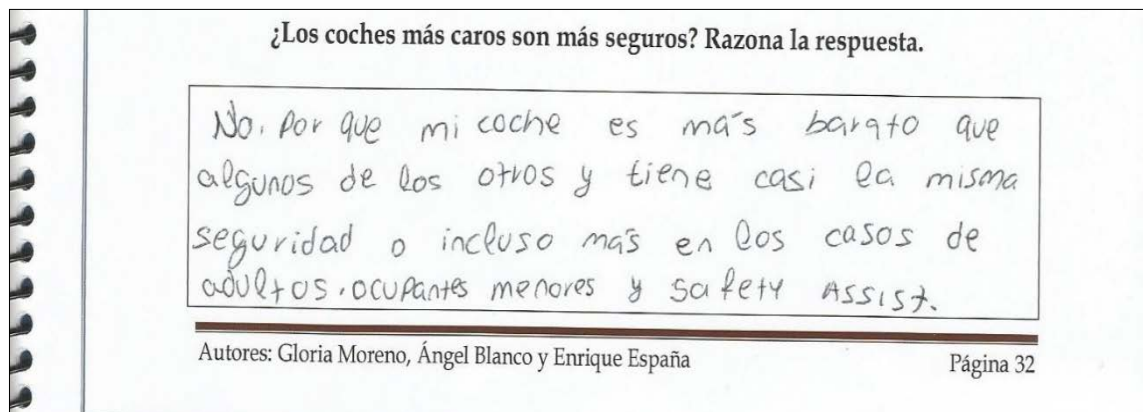 ¿Los coches más caros son más seguros? Razona la respuesta.
No. Por que mi coche es más barato que
algunos de los otros y tiene casi la misma
seguridad o incluso más en los casos de
adultos, ocupantes menores y Safety Assist.
Autores: Gloria Moreno, Ángel Blanco y Enrique España
Página 32